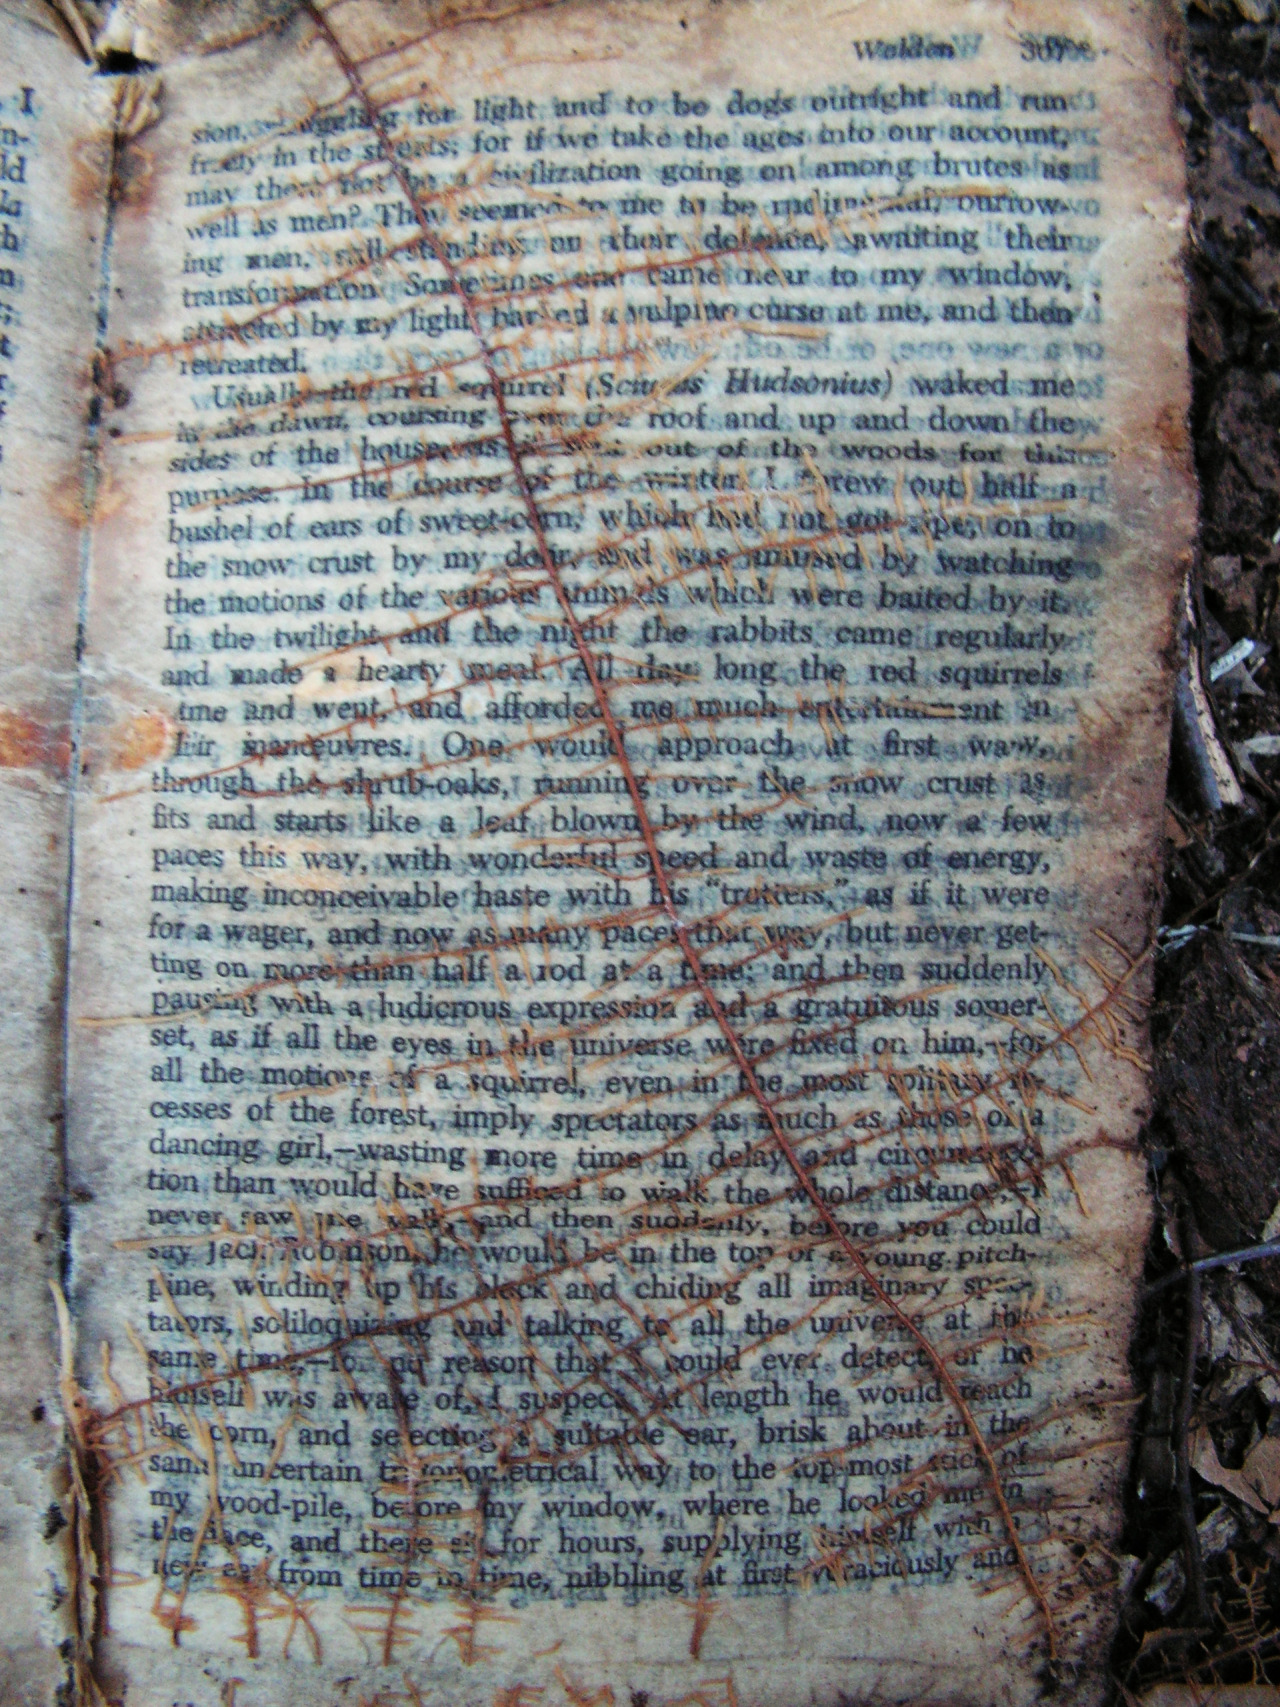 Walden
sion, struggling for light and to be dogs outright and run
freely in the streets; for if we take the ages into our account,
may there not be a civilization going on among brutes as
well as men? They seemed to me to be rudimental, burrow-
ing men, still standing on their defence, awaiting their
transformation. Sometimes one came near to my window,
attracted by my light, barked a vulpine curse at me, and then
retreated.
Usually the red squirrel (Sciurus Hudsonius) waked me
in the dawn, coursing over the roof and up and down the
sides of the house, as if sent out of the woods for this
purpose. In the course of the winter I threw out half a
bushel of ears of sweet-corn, which had not got ripe, on to
the snow crust by my door, and was amused by watching
the motions of the various animals which were baited by it.
In the twilight and the night the rabbits came regularly
and made a hearty meal. All day long the red squirrels
came and went, and afforded me much entertainment in
their manœuvres. One would approach at first
through the shrub-oaks, running over the snow crust
fits and starts like a leaf blown by the wind, now a few
paces this way, with wonderful speed and waste of energy,
making inconceivable haste with his “trotters,” as if it were
for a wager, and now as many paces that way, but never get-
ting on more than half a rod at a time; and then suddenly
pausing with a ludicrous expression and a gratuitous somer-
set, as if all the eyes in the universe were fixed on him,—for
all the motions of a squirrel, even in the most solitary re-
cesses of the forest, imply spectators as much as those of a
dancing girl,—wasting more time in delay and circumspec-
tion than would have sufficed to walk the whole distance,—I
never saw one walk,—and then suddenly, before you could
say Jack Robinson, he would be in the top of a young pitch-
pine, winding up his clock and chiding all imaginary spec-
tators, soliloquizing and talking to all the universe at the
same time,—for no reason that I could ever detect, or he
himself was aware of, I suspect. At length he would reach
the corn, and selecting a suitable ear, brisk about in the
same uncertain trigonometrical way to the top-most stick of
my wood-pile, before my window, where he looked me in
the face, and there sit for hours, supplying himself with a
new ear from time to time, nibbling at first voraciously and